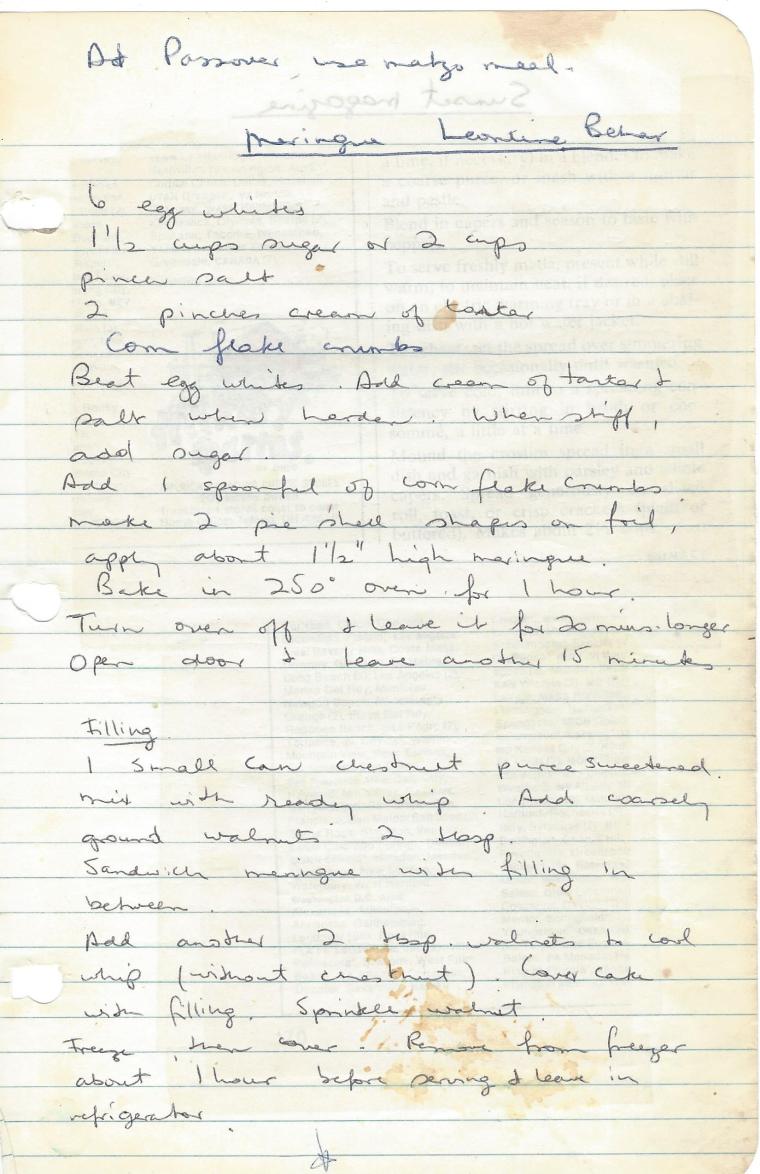 At Passover use matzo meal.
Meringue Leontine Behar
6 egg whites
1 1/2 cups sugar or 2 cups
pinch salt
2 pinches cream of tarter
Corn flake crumbs
Beat egg whites. Add cream of tarter &
salt when harder. When stiff,
add sugar.
Add 1 spoonful of corn flake crumbs
make 2 pie shell shapes on foil,
apply about 1 1/2" high meringue.
Bake in 250° oven for 1 hour.
Turn oven off & leave it for 20 mins. longer
Open door & leave another 15 minutes.
Filling
1 small can chestnut puree sweetened.
mix with ready whip. Add coarsely
ground walnuts 2 tbsp.
Sandwich meringue with filling in
between.
Add another 2 tbsp. walnuts to cool
whip (without chestnut). Cover cake
with filling. Sprinkle walnut.
Freeze, then cover. Remove from freezer
about 1 hour before serving & leave in
refrigerator